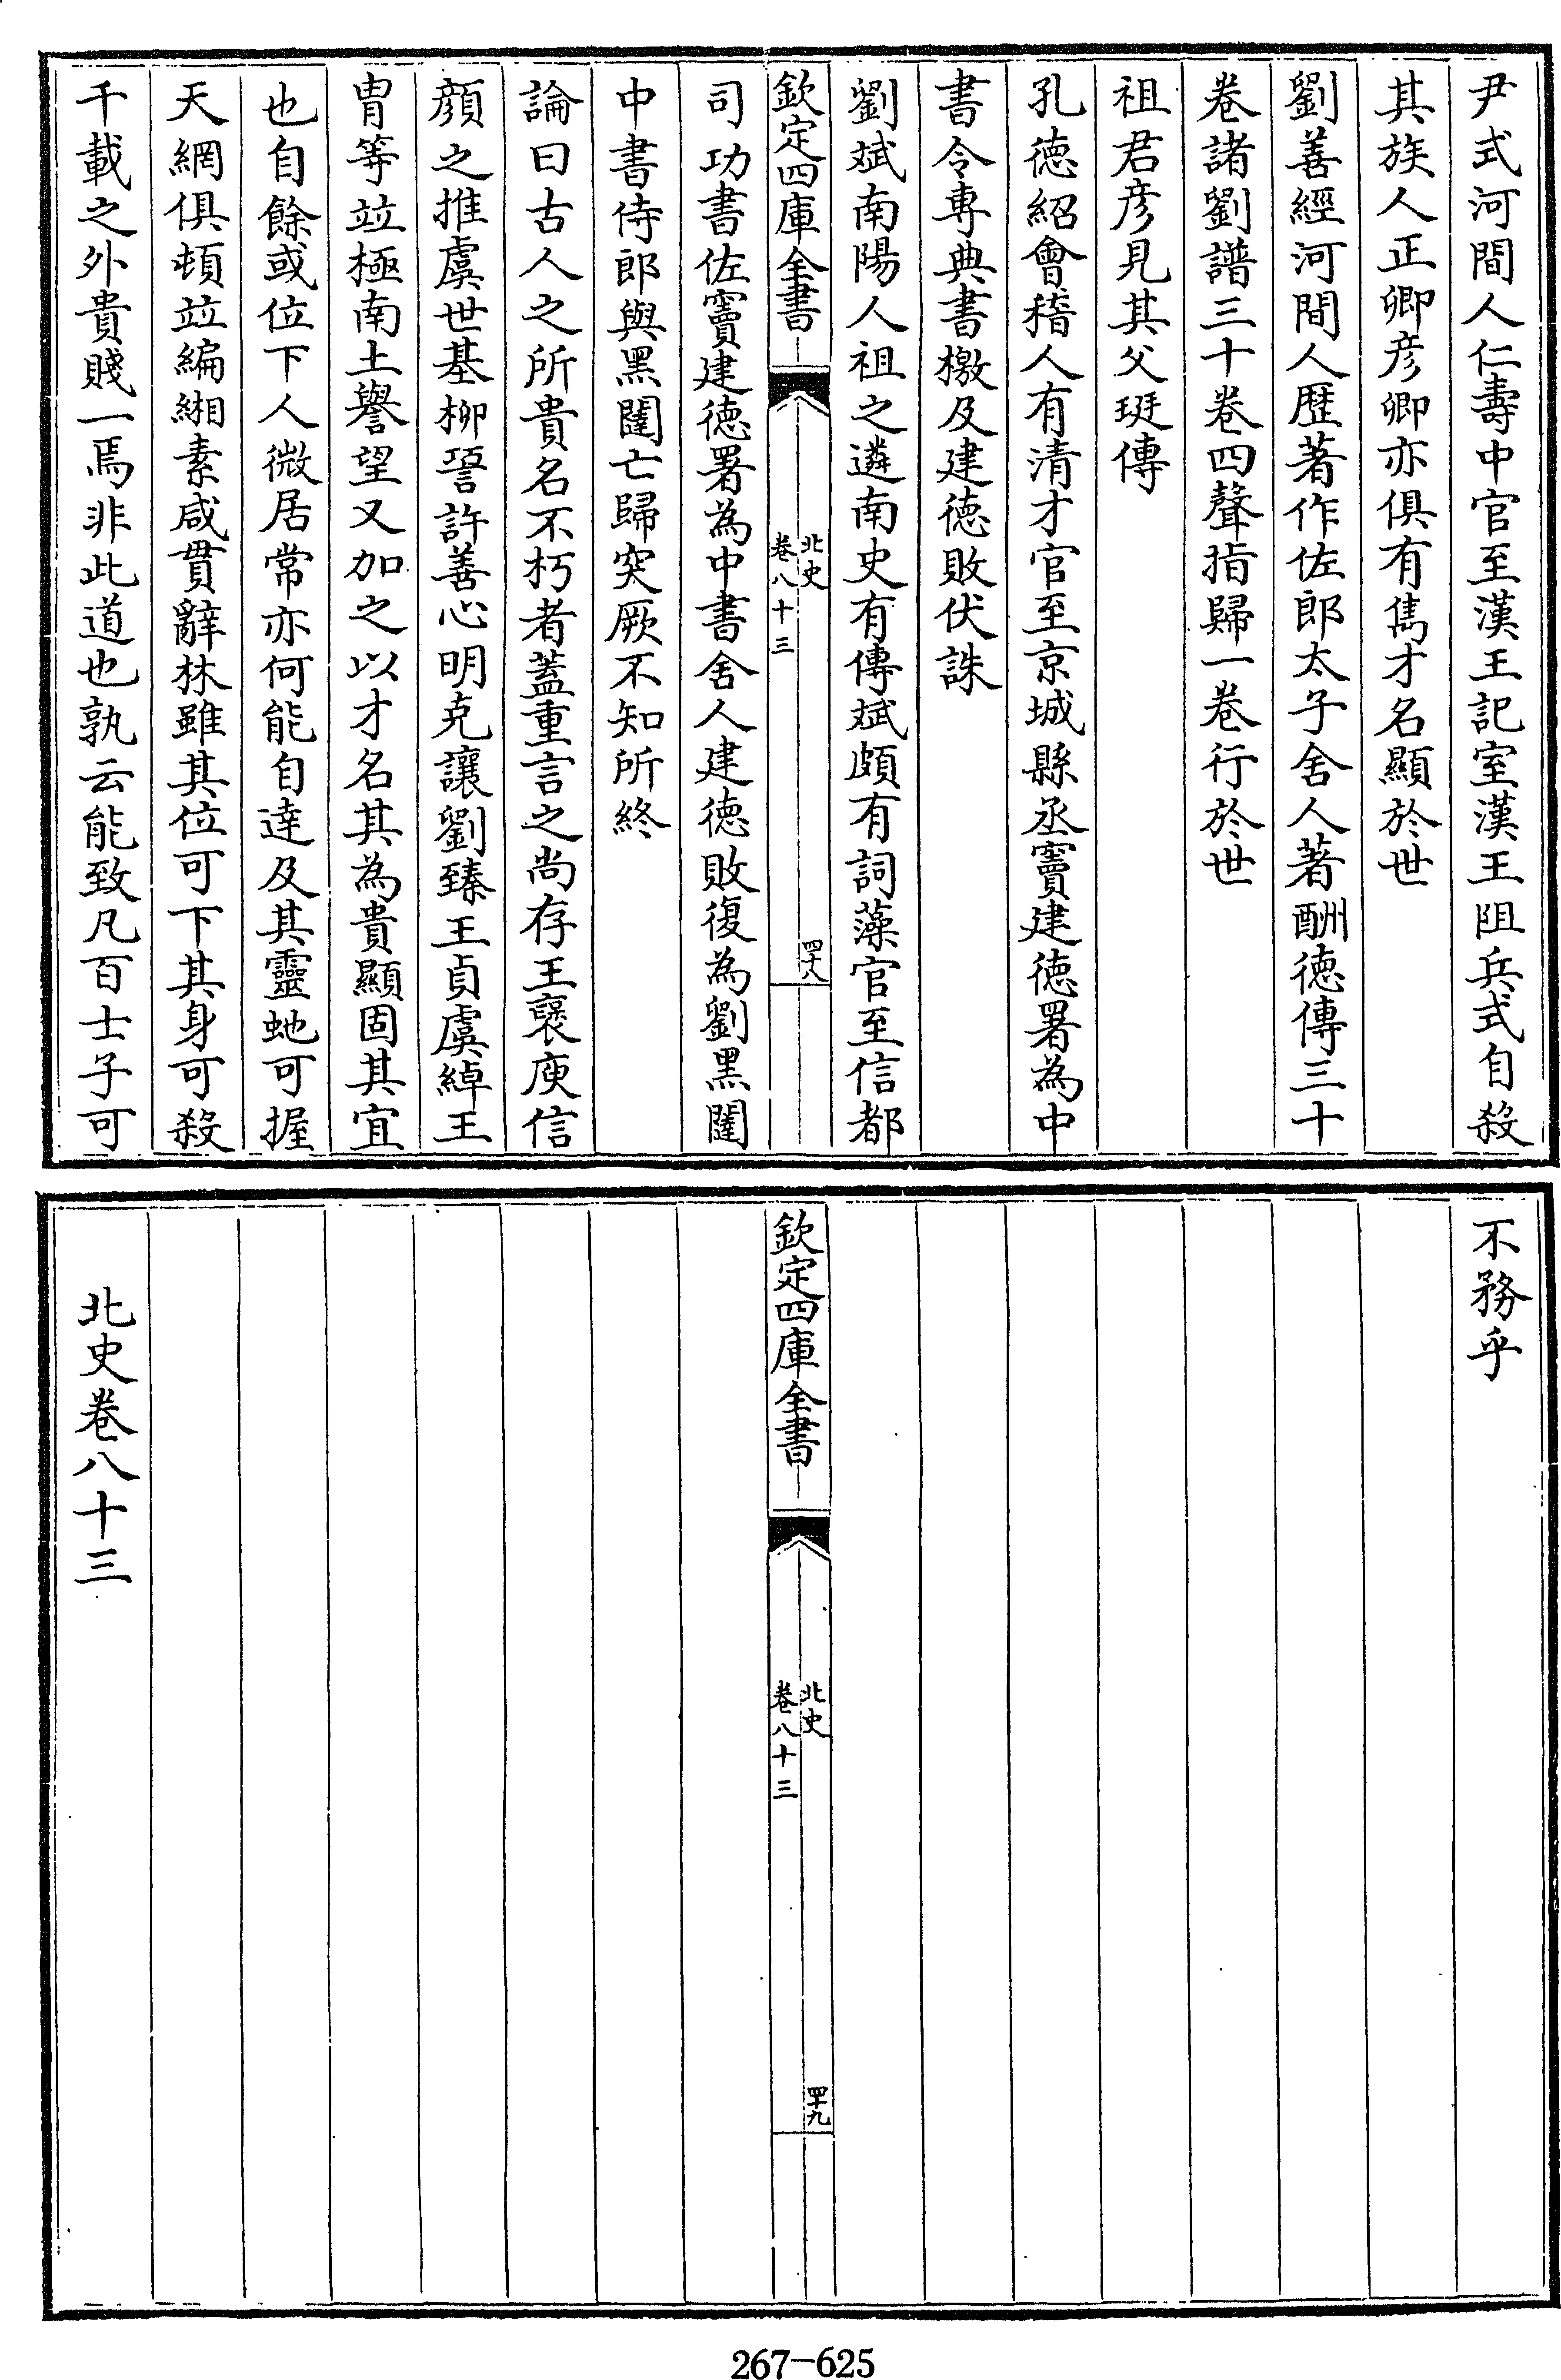 尹式河間人仁壽中官至漢王記室漢王阻兵式自殺
其族人正卿彦卿亦俱有雋才名顯於世
劉善經河間人歴著作佐郎太子舍人著酬徳傳三十
卷諸劉譜三十卷四聲指歸一卷行於世
祖君彦見其父珽傳
孔徳紹會稽人有清才官至京城縣丞竇建徳署為中
書令専典書檄及建徳敗伏誅
劉斌南陽人祖之遴南史有傳斌頗有詞藻官至信都
欽定四庫全書
北史
卷八十三
四十八
司功書佐竇建徳署為中書舍人建徳敗復為劉黑闥
中書侍郎與黑闥亡歸突厥不知所終
論曰古人之所貴名不朽者蓋重言之尚存王裦庾信
顔之推虞世基柳䛒許善心明克讓劉臻王貞虞綽王
胄等竝極南土譽望又加之以才名其為貴顯固其宜
也自餘或位下人微居常亦何能自達及其靈虵可握
天網俱頓竝編緗素咸貫辭林雖其位可下其身可殺
千載之外貴賤一焉非此道也孰云能致凡百士子可
不務乎
欽定四庫全書
北史
卷八十三
四十九
北史卷八十三
267-625